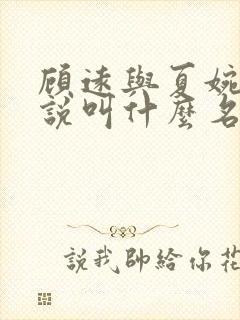 顾遠與夏婉
說叫什麼名
說我帥給你花